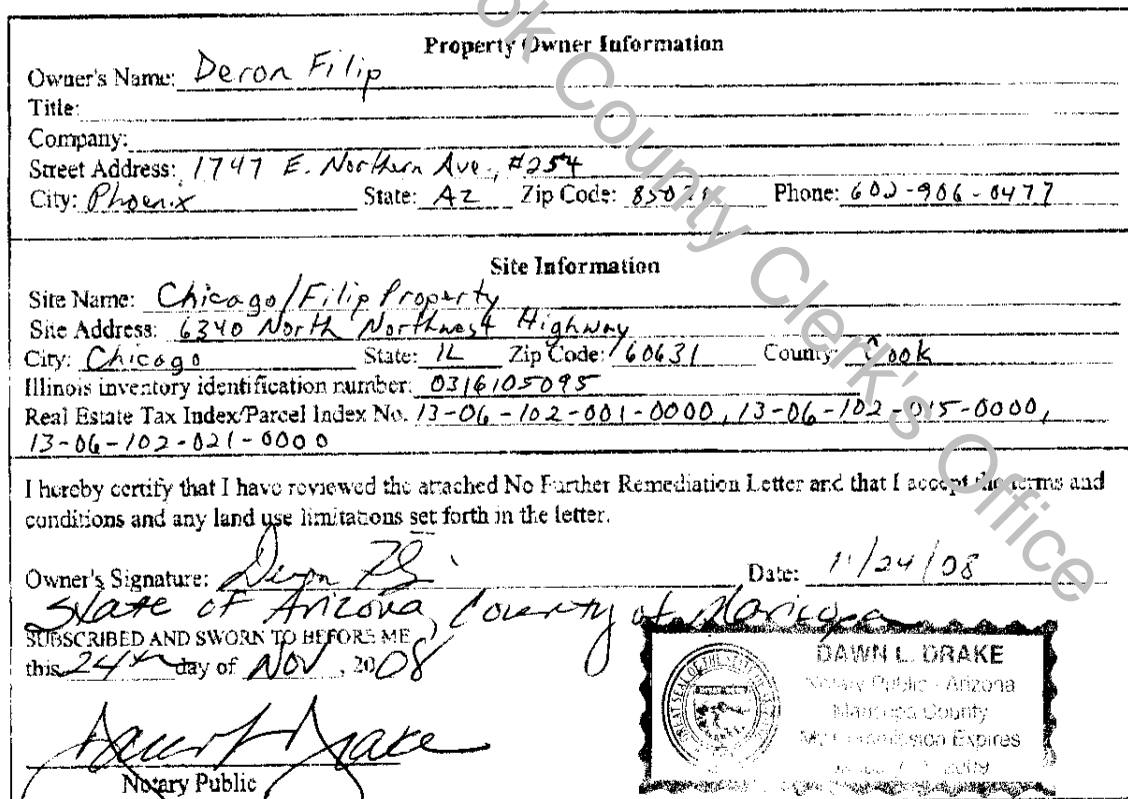 Property Owner Information
Owner's Name: Deron Filip
Title:
Company:
Street Address: 1747 E. Northern Ave., #254
City: Phoenix State: AZ Zip Code: Phone: 602-906-0477
Site Information
Site Name: Chicago/Filip Property
Site Address: 6340 North Northwest Highway
City: Chicago State: IL Zip Code: 60631 County: Cook
Illinois inventory identification number: 0316105095
Real Estate Tax Index/Parcel Index No. 13-06-102-001-0000, 13-06-102-015-0000,
13-06-102-021-0000
I hereby certify that I have reviewed the attached No Further Remediation Letter and that I accept the terms and
conditions and any land use limitations set forth in the letter.
Owner's Signature: Deron Date: 11/24/08
State of Arizona, County of Maricopa
SUBSCRIBED AND SWORN TO BEFORE ME
this 24th day of Nov, 2008
DAWN L. DRAKE
Notary Public - Arizona
Maricopa County
My Commission Expires
2009
Dawn L Drake
Notary Public
Cook County Clerk's Office